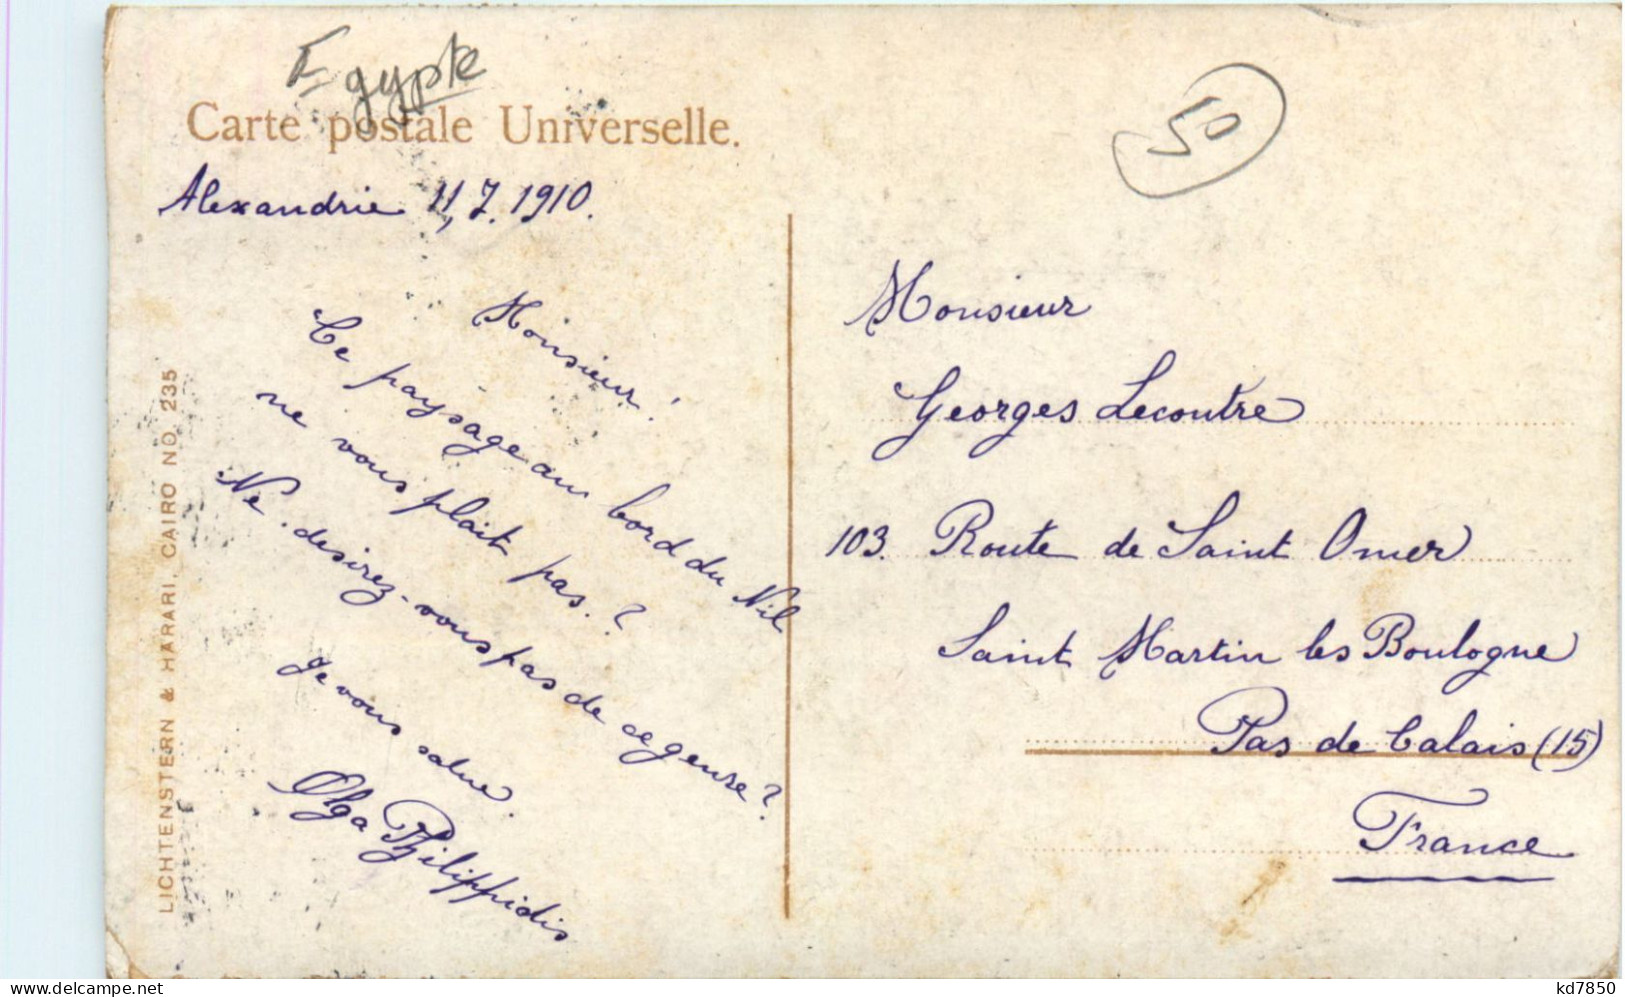 Egypte
50
Carte postale Universelle.
Alexandrie 11,7.1910.
Monsieur!
Ce paysage au bord du Nil
ne vous plait pas.?
Ne desirez-vous pas de ce genre?
Je vous salue.
Olga Philippidis
LICHTENSTERN & HARARI, CAIRO NO 235
Monsieur
Georges Lecoutre
103. Route de Saint Omer
Saint Martin les Boulogne
Pas de Calais (15)
France
kd7850